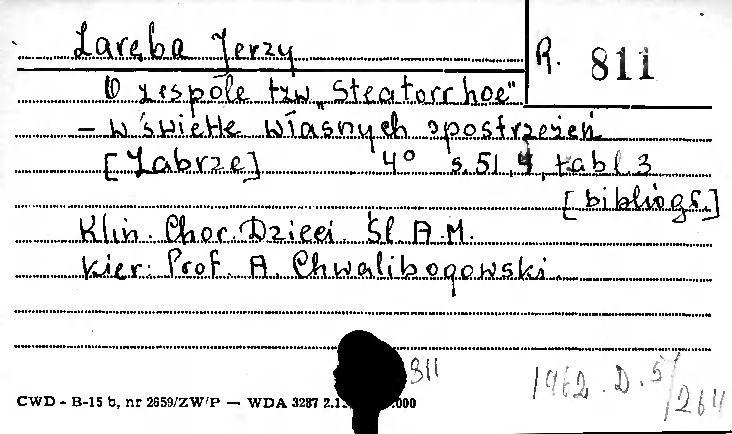 Zaręba Jerzy
R. 811
O zespole tzw „Steatorrhoe"
– w świetle własnych spostrzeżeń
[Zabrze] 4° s. 51, 4, tabl. 3
[bibliogr.]
Klin. Chor. Dzieci Śl. A.M.
Kier: Prof. A. Chwalibogowski.
811
1962. D. 5/264
CWD - B-15 b, nr 2659/ZW/P — WDA 3287 000